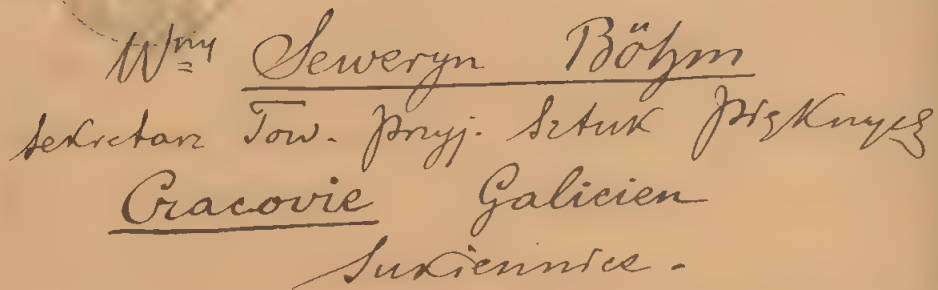 Wny Seweryn Böhm
Sekretarz Tow. przyj. Sztuk pięknych
Cracovie Galicien
Sukiennice.